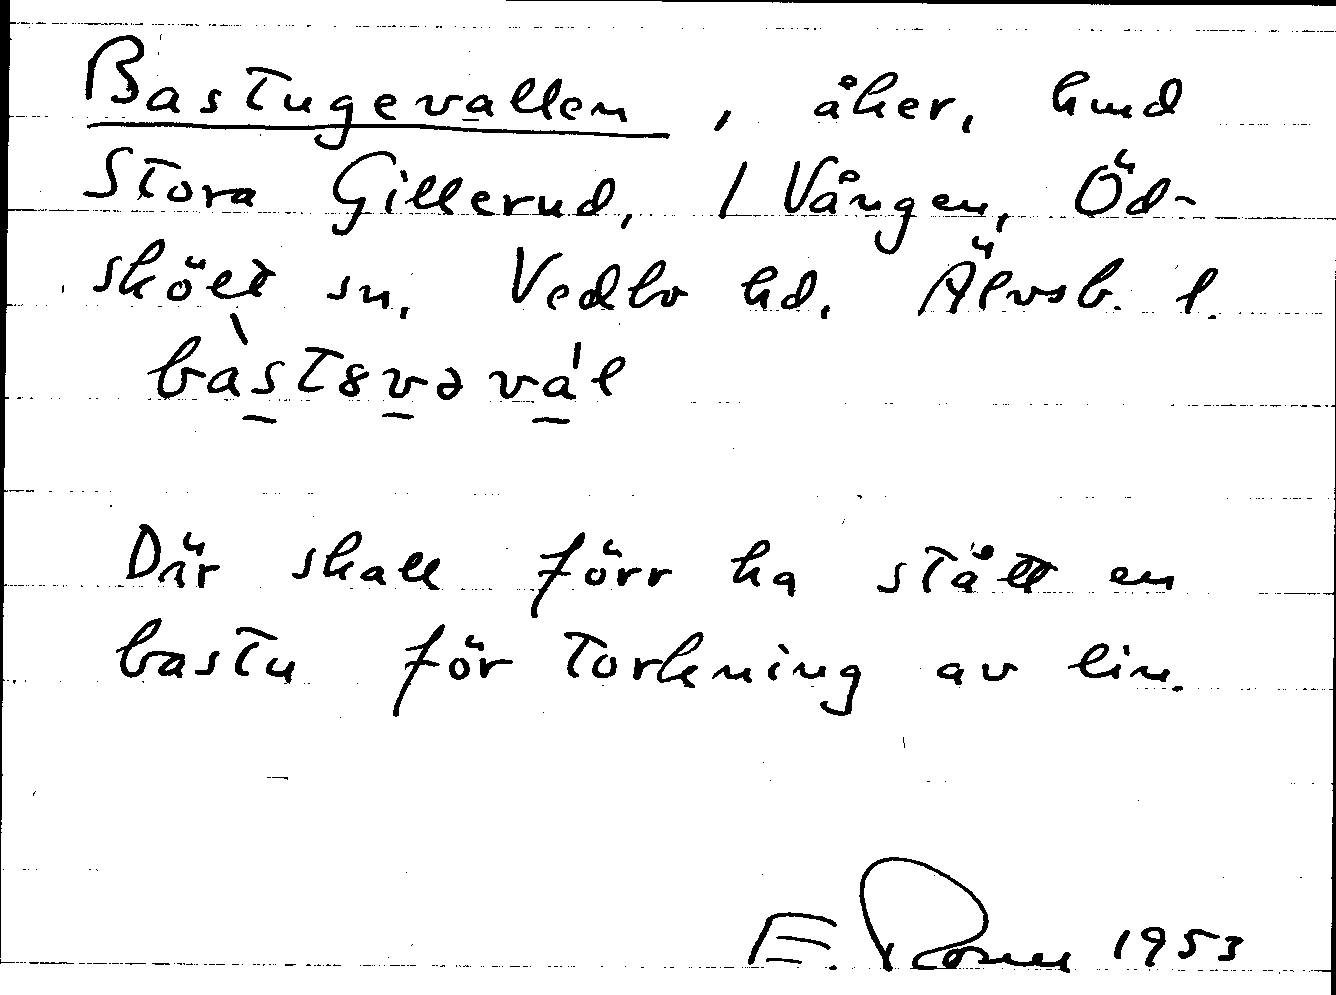 Bastugevallen, åker, hmd
Stora Gillerud, 1 Vången, Öd-
skölt sn, Vedbo hd. Älvsb. l.
bàst8vəvál
Där skall förr ha stått en
bastu för torkning av lin.
E. 1953